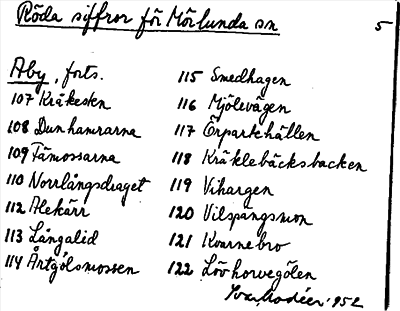 Röda siffror för Mörlunda sn
5
Åby, forts.
107 Kråkesten
108 Dunhamrarna
109 Tämossarna
110 Norrlångsdraget
112 Alekärr
113 Långalid
114 Årtgölsmossen
115 Smedhagen
116 Mjölevägen
117 Erpartehällen
118 Kräklebäcksbacken
119 Vihagen
120 Vilspångsmon
121 Kvarnebro
122 Lövhorvegölen
Ivar Modéer 1952